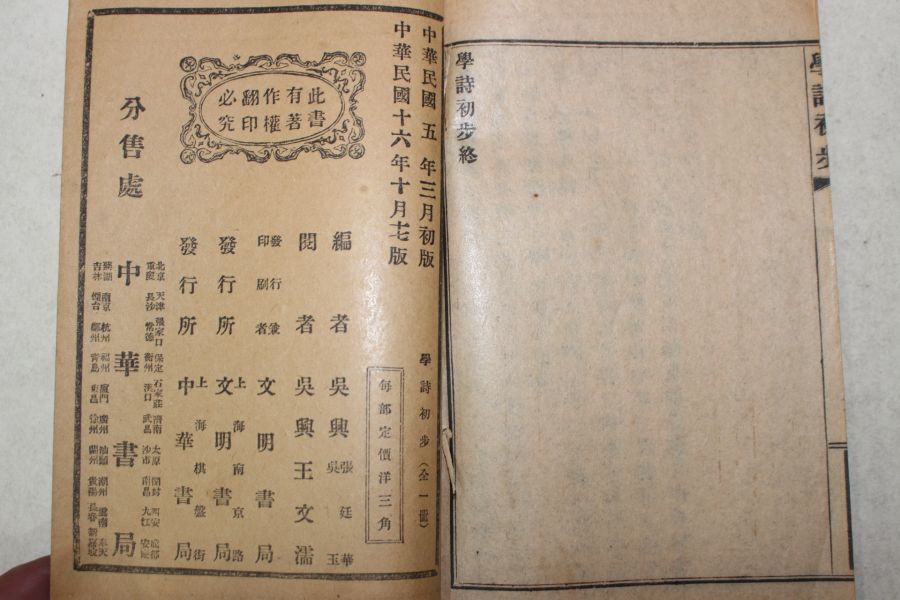 學詩初步
學詩初步終
中華民國五年三月初版
中華民國十六年十月十七版
學詩初步（全一冊）
每部定價洋三角
此書
有著
作權
翻印
必究
編者 吳興 張廷華 吳玉
閱者 吳興王文濡
發行兼印刷者 文明書局
發行所 上海南京路 文明書局
發行所 上海棋盤街 中華書局
分售處
中華書局
北京 天津 張家口 保定 石家莊 濟南 太原 開封 西安 成都
重慶 長沙 常德 衡州 漢口 武昌 沙市 南昌 九江 安慶
蕪湖 南京 杭州 福州 廈門 廣州 汕頭 潮州 雲南 奉天
吉林 煙台 鄭州 青島 東昌 徐州 蘭州 貴陽 長春 新嘉坡